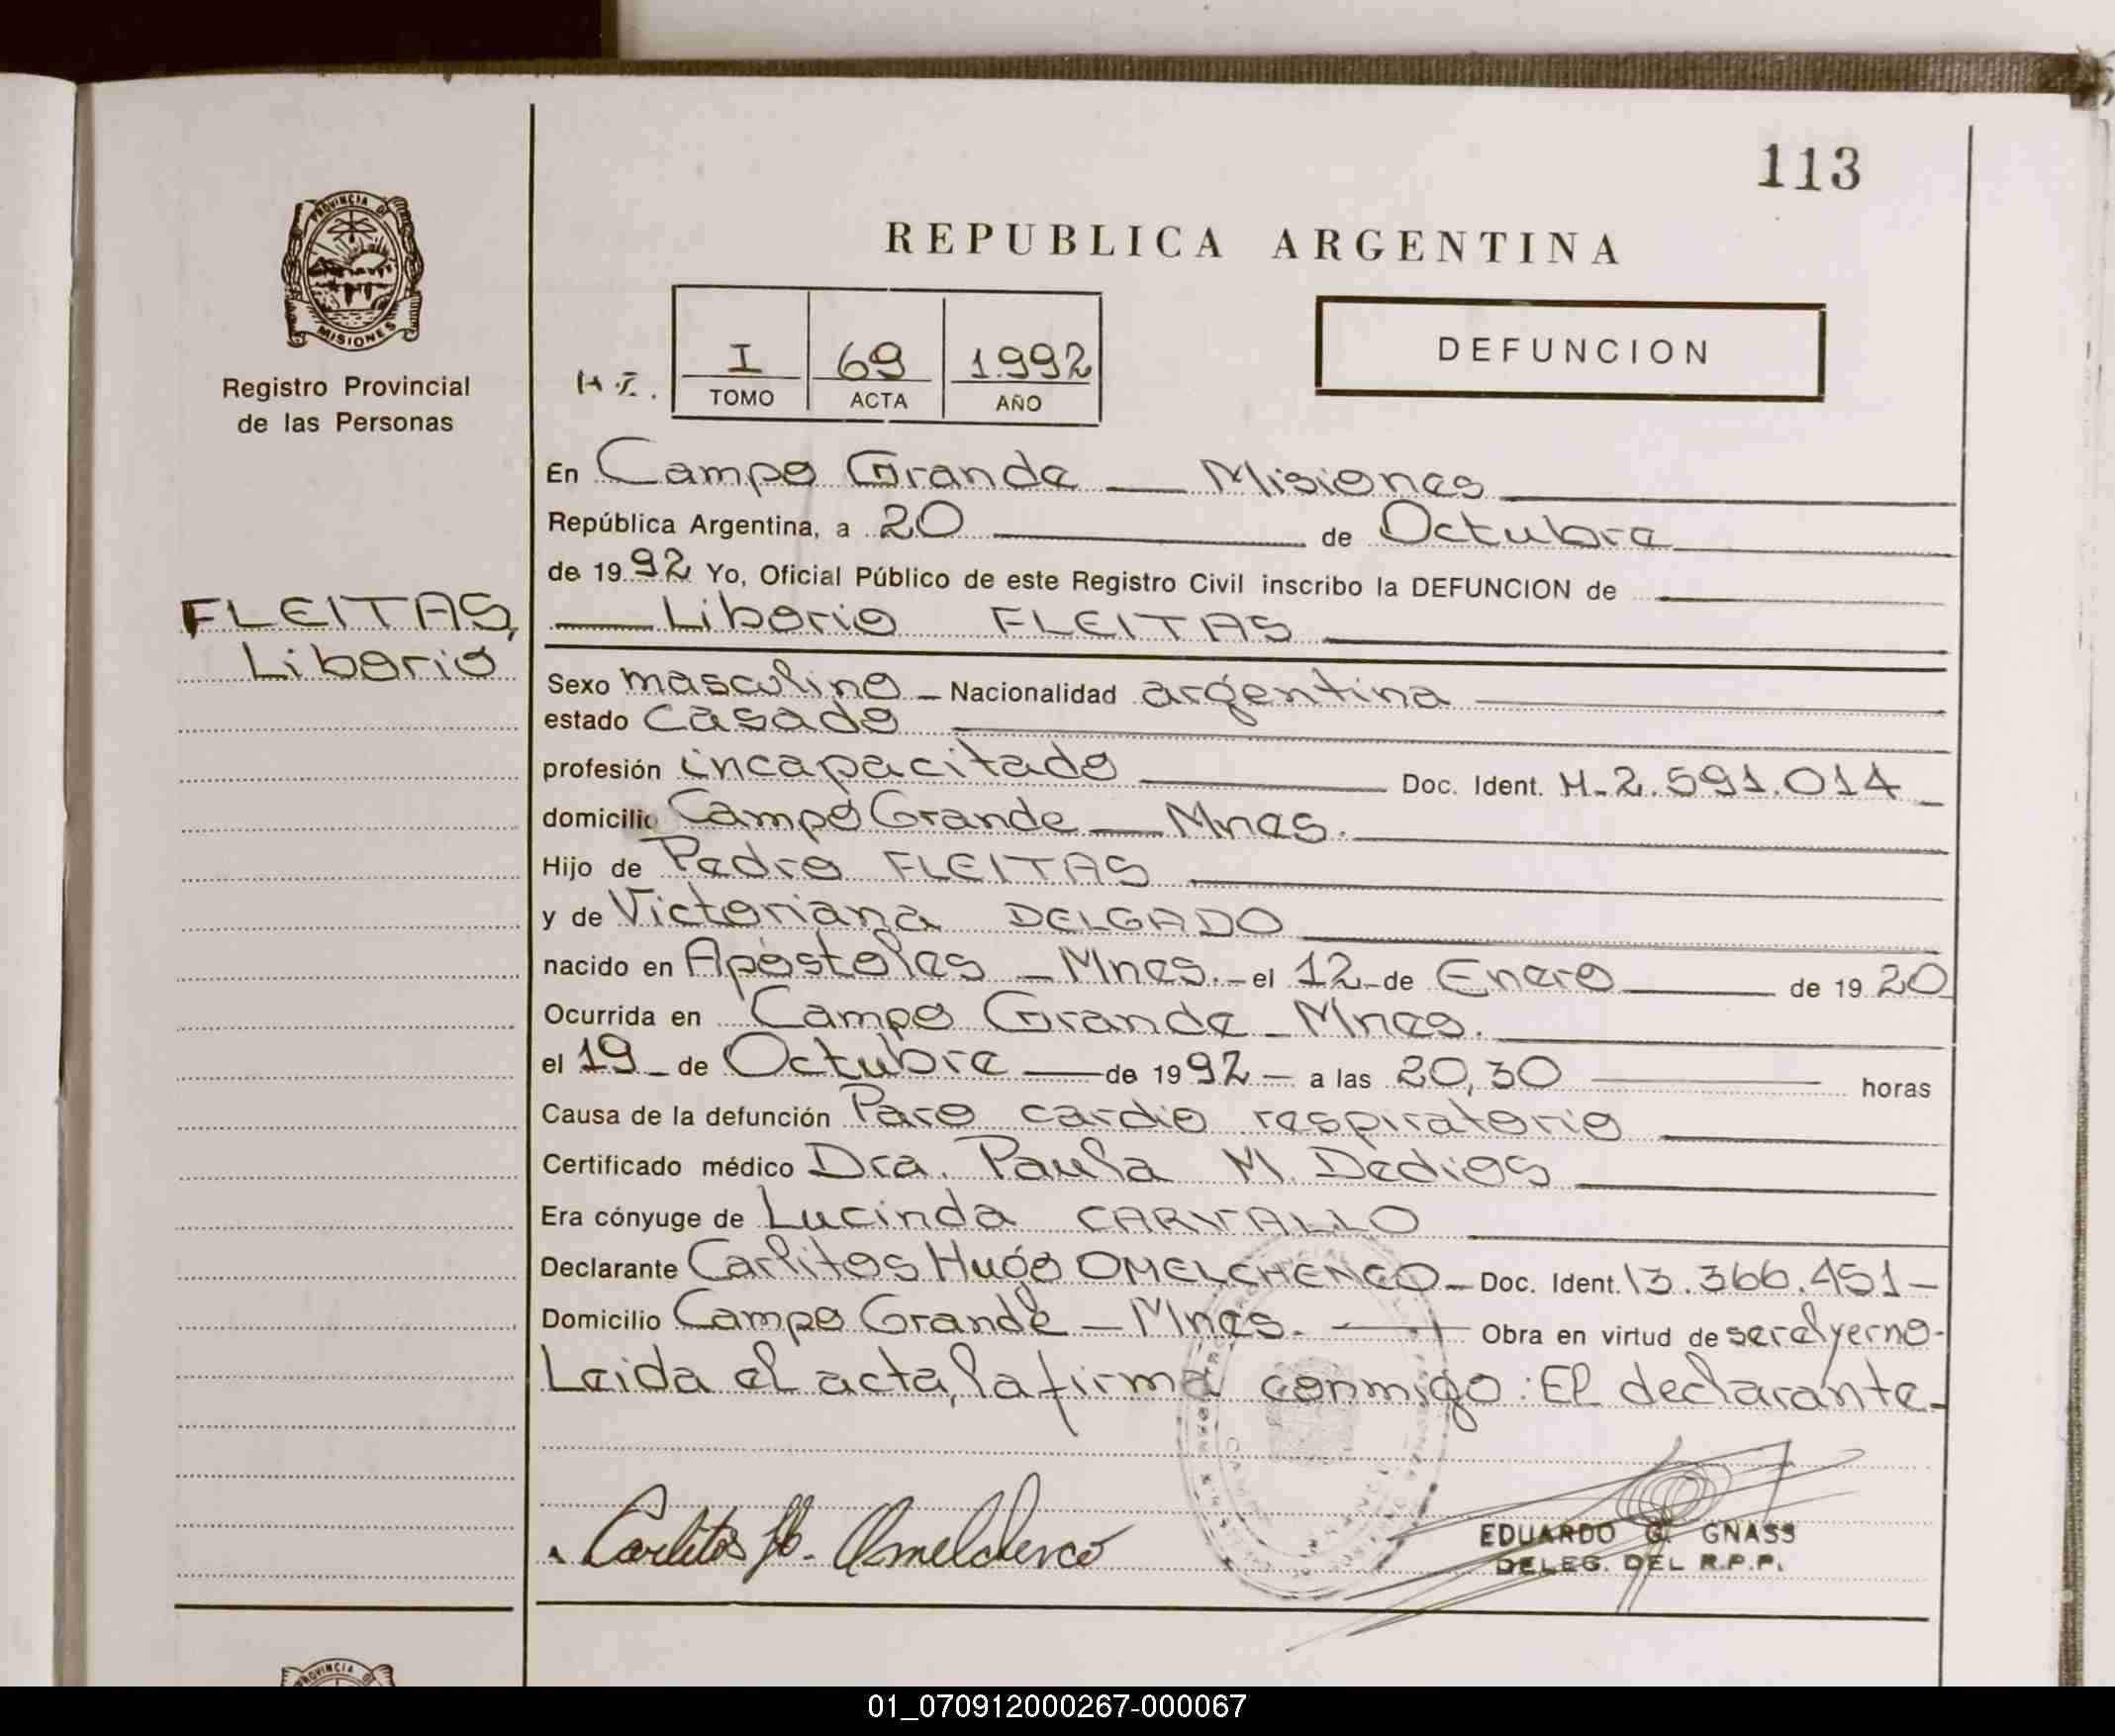 113
REPUBLICA ARGENTINA
PROVINCIA DE
MISIONES
Registro Provincial
de las Personas
I 69 1.992
TOMO ACTA AÑO
DEFUNCION
En Campo Grande — Misiones
República Argentina, a 20 de Octubre
de 1992 Yo, Oficial Público de este Registro Civil inscribo la DEFUNCION de
FLEITAS,
Liborio
Liborio FLEITAS
Sexo masculino - Nacionalidad argentina
estado casado
profesión incapacitado Doc. Ident. M-2.591.014
domicilio Campo Grande — Mnes.
Hijo de Pedro FLEITAS
y de Victoriana DELGADO
nacido en Apóstoles - Mnes. - el 12 - de Enero de 1920
Ocurrida en Campo Grande - Mnes.
el 19 - de Octubre — de 1992 — a las 20,30 horas
Causa de la defunción Paro cardio respiratorio
Certificado médico Dra. Paula M. Dedios
Era cónyuge de Lucinda CARVALLO
Declarante Carlitos Hugo OMELCHENCO - Doc. Ident. 13.366.451 -
Domicilio Campo Grande - Mnes. Obra en virtud de ser el yerno -
Leida el acta, la firma conmigo: El declarante -
Carlitos H. Omelchenco
EDUARDO G. GNASS
DELEG. DEL R.P.P.
PROVINCIA
01_070912000267-000067